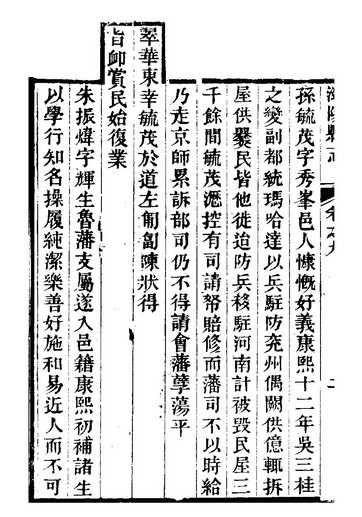 滋陽縣志
卷之九
孫毓茂字秀峯邑人慷慨好義康熙十二年吳三桂
之變副都統瑪哈達以兵駐防兖州偶闕供億輒拆
屋供爨民皆他徙迨防兵移駐河南計被毀民屋三
千餘間毓茂遞控有司請帑賠修而藩司不以時給
乃走京師累訴部司仍不得請會藩孽蕩平
翠華東幸毓茂於道左匍匐陳狀得
旨卹賞民始復業
朱振煒字輝生魯藩支屬遂入邑籍康熙初補諸生
以學行知名操履純潔樂善好施和易近人而不可